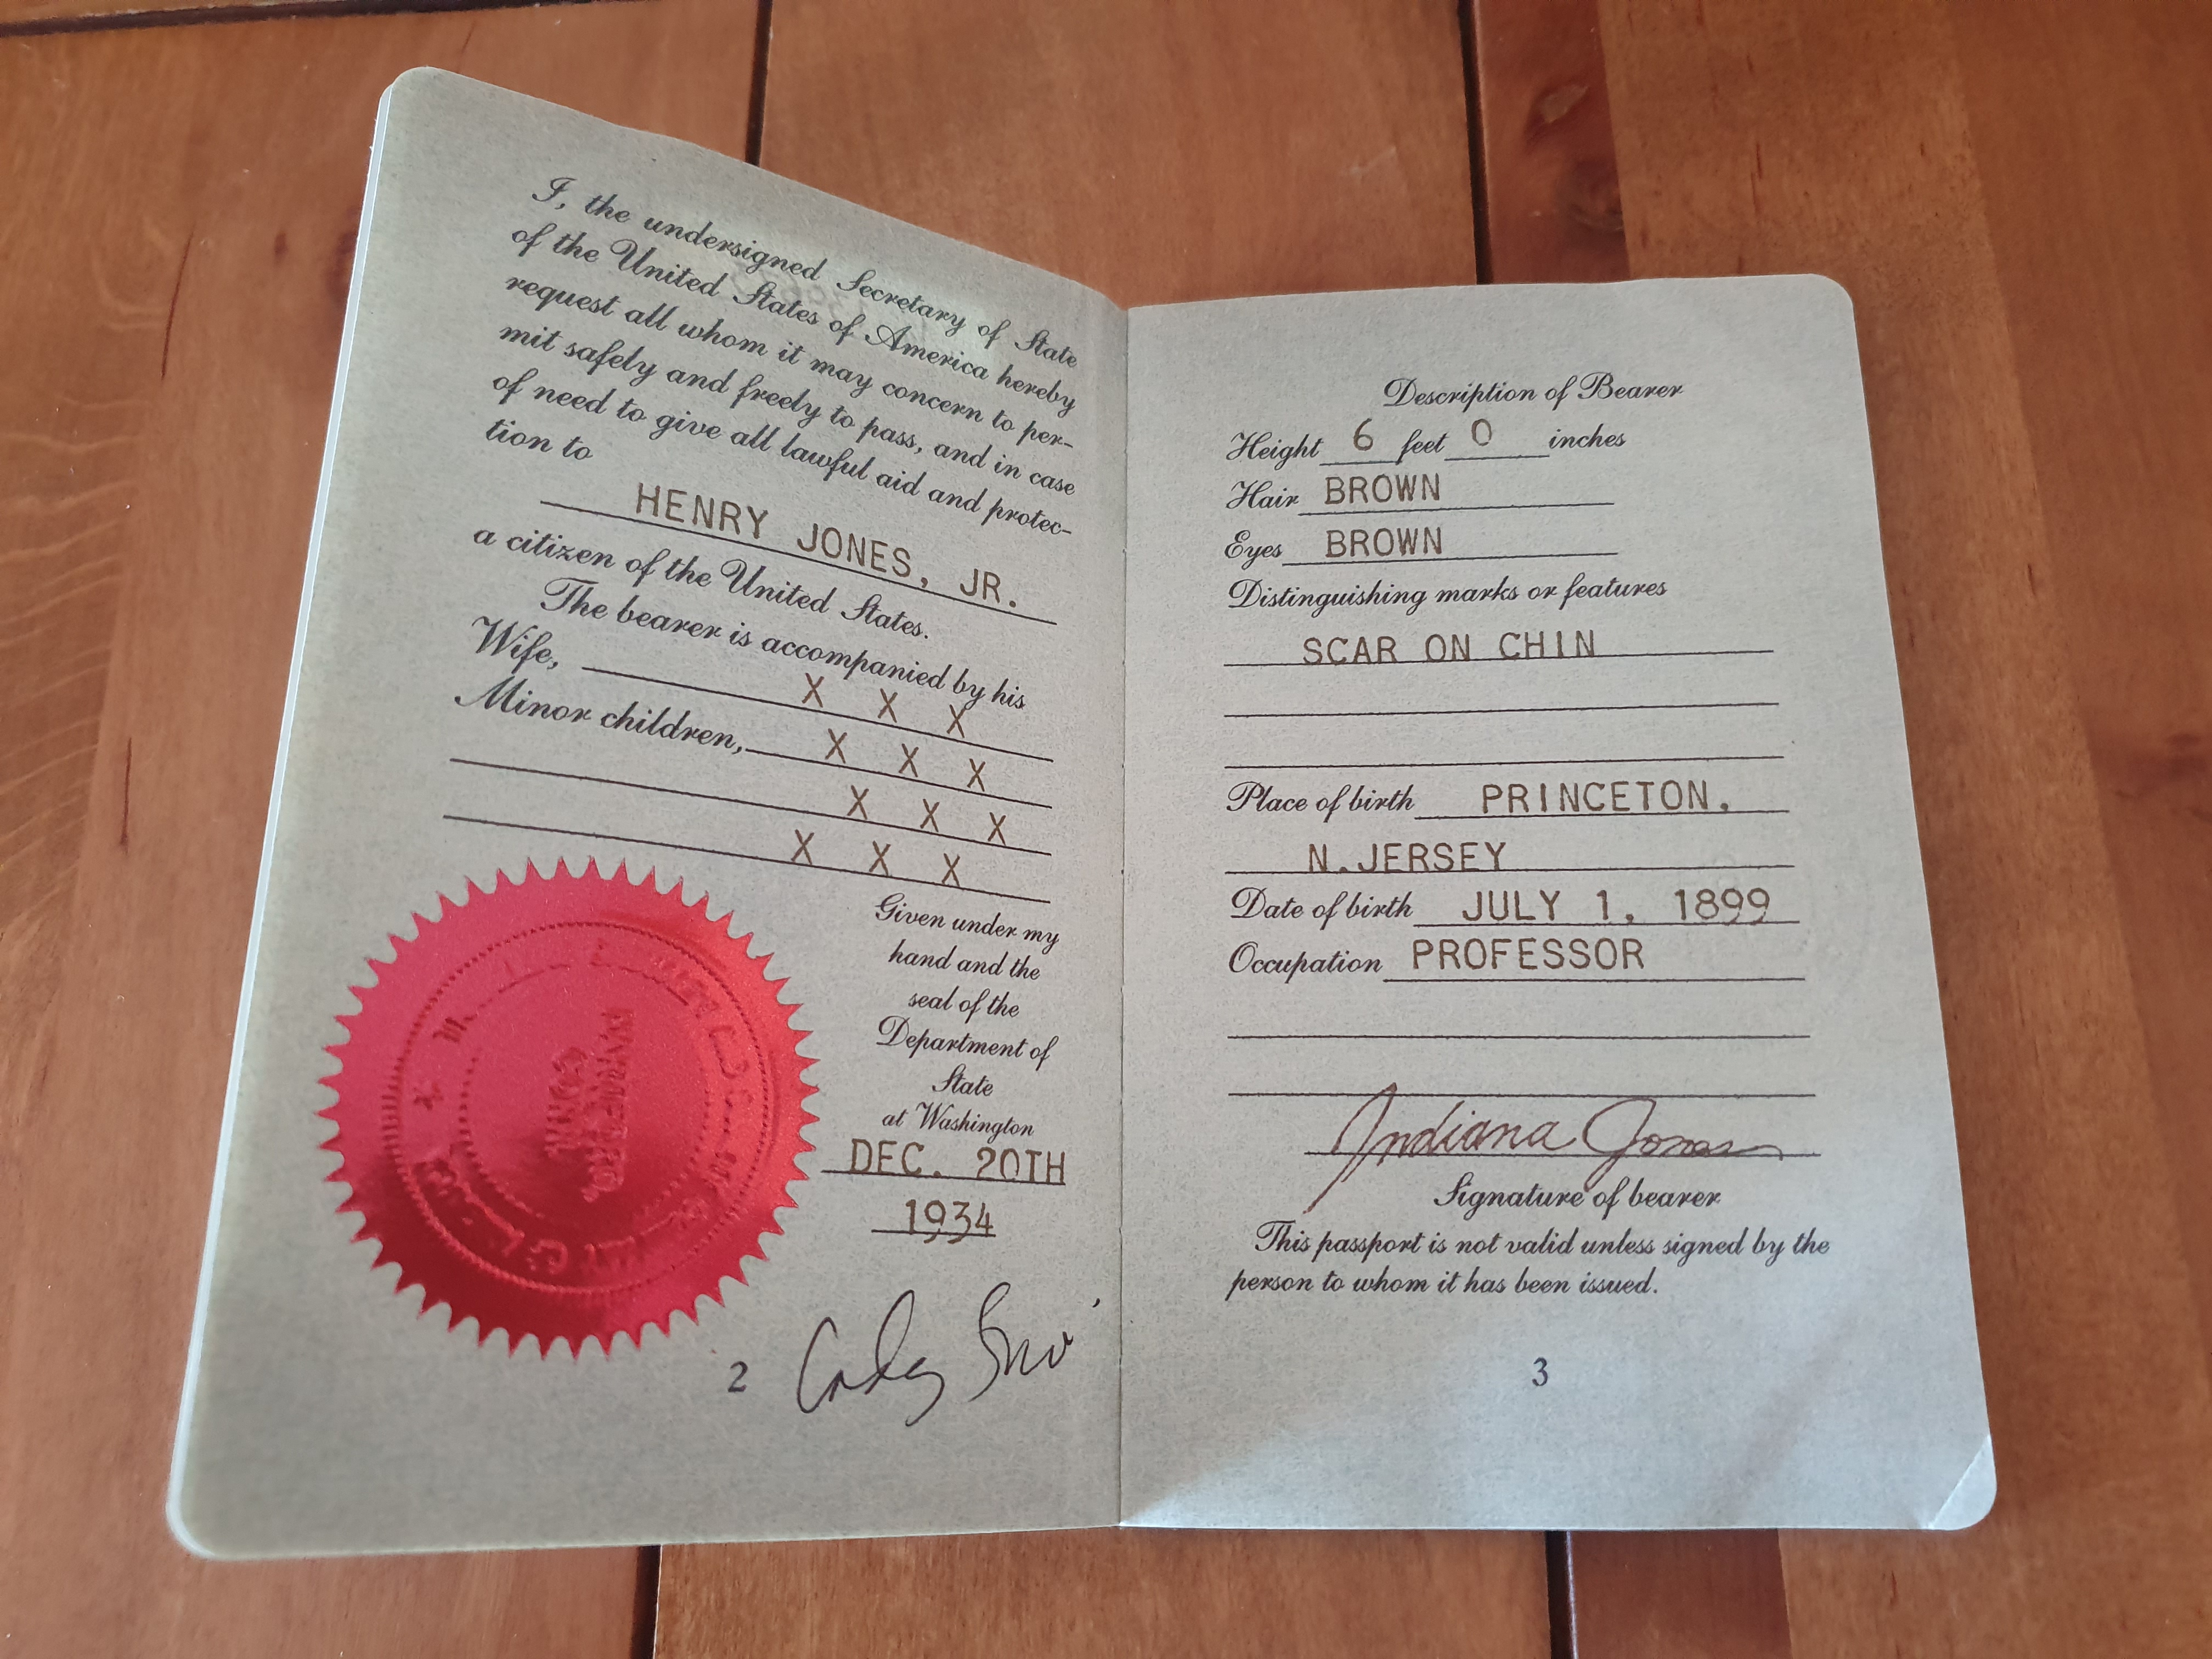 I, the undersigned Secretary of State
of the United States of America hereby
request all whom it may concern to per-
mit safely and freely to pass, and in case
of need to give all lawful aid and protec-
tion to
HENRY JONES, JR.
a citizen of the United States.
The bearer is accompanied by his
Wife, X X X
Minor children, X X X
X X X
X X X
Given under my
hand and the
seal of the
Department of
State
at Washington
DEC. 20TH
1934
2
Description of Bearer
Height 6 feet 0 inches
Hair BROWN
Eyes BROWN
Distinguishing marks or features
SCAR ON CHIN
Place of birth PRINCETON.
N.JERSEY
Date of birth JULY 1, 1899
Occupation PROFESSOR
Indiana Jones
Signature of bearer
This passport is not valid unless signed by the
person to whom it has been issued.
3